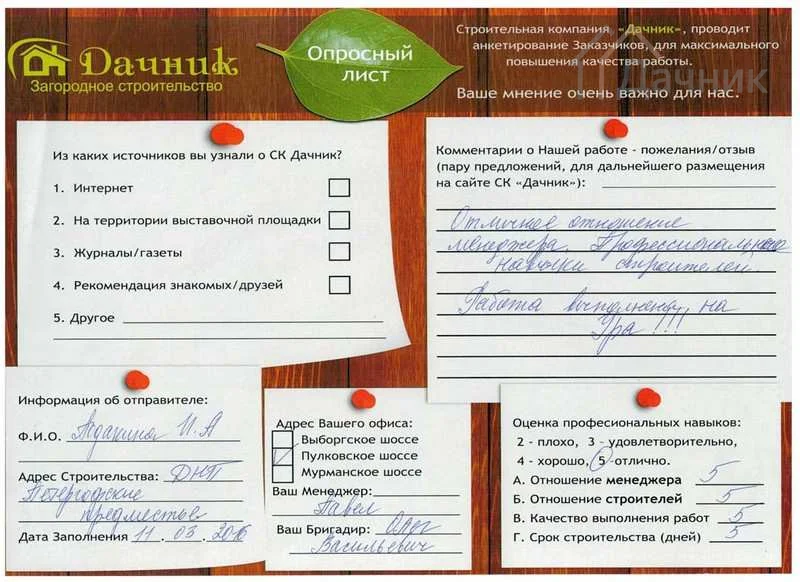 Дачник
Загородное строительство
Опросный
лист
Строительная компания «Дачник», проводит
анкетирование Заказчиков, для максимального
повышения качества работы.
Дачник
Ваше мнение очень важно для нас.
Из каких источников вы узнали о СК Дачник?
1. Интернет
2. На территории выставочной площадки
3. Журналы/газеты
4. Рекомендация знакомых/друзей
5. Другое
Комментарии о Нашей работе - пожелания/отзыв
(пару предложений, для дальнейшего размещения
на сайте СК «Дачник»):
Отличное отношение
менеджера. Профессиональные
навыки строителей.
Работа выполнена на
Ура!!!
Информация об отправителе:
Ф.И.О. И.А
Адрес Строительства: ДНП
Петергофские
предместье
Дата Заполнения 11.03.2016
Адрес Вашего офиса:
Выборгское шоссе
Пулковское шоссе
Мурманское шоссе
Ваш Менеджер:
Павел
Ваш Бригадир: Олег
Васильевич
Оценка професиональных навыков:
2 - плохо, 3 - удовлетворительно,
4 - хорошо, 5 -отлично.
А. Отношение менеджера 5
Б. Отношение строителей 5
В. Качество выполнения работ 5
Г. Срок строительства (дней) 5